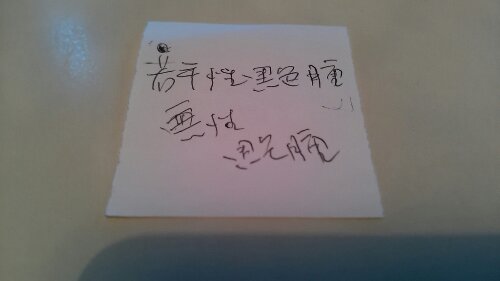 若年性黒色腫
悪性
黒色腫